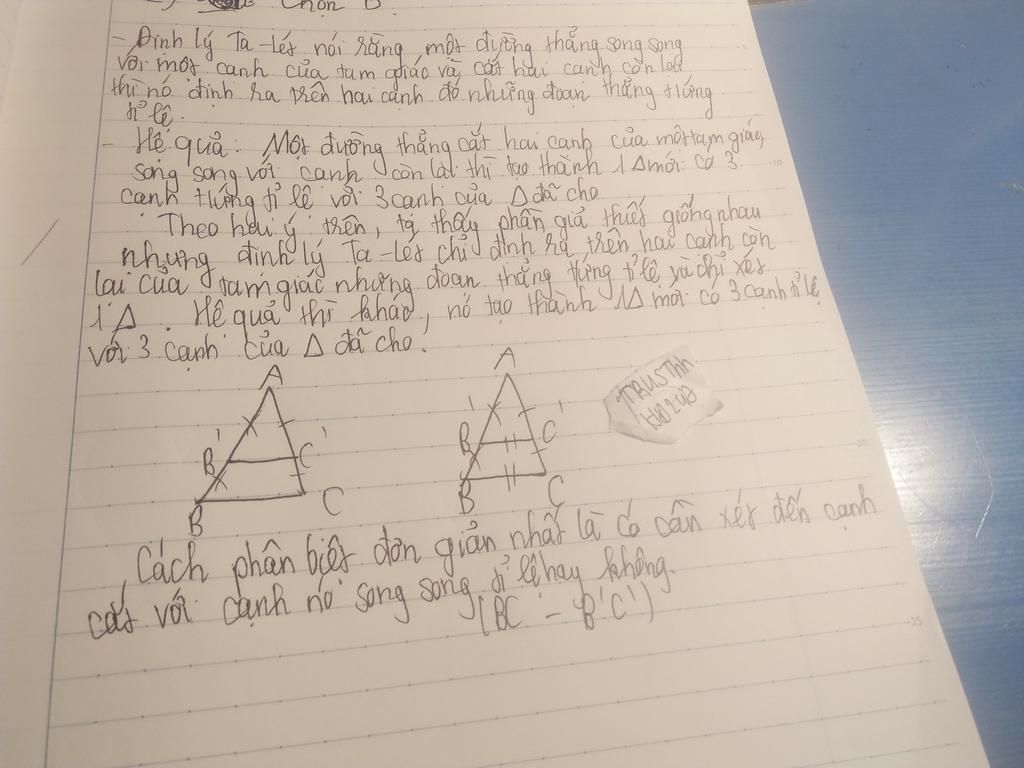 Chọn B.
- Định lý Ta-lét nói rằng một đường thẳng song song
với một cạnh của tam giác và cắt hai cạnh còn lại
thì nó định ra trên hai cạnh đó những đoạn thẳng tương
tỉ lệ.
- Hệ quả: Một đường thẳng cắt hai cạnh của một tam giác,
song song với cạnh còn lại thì tạo thành 1 Δ mới có 3
cạnh tương tỉ lệ với 3 cạnh của Δ đã cho
Theo hai ý trên, ta thấy phần giả thiết giống nhau
nhưng định lý Ta-lét chỉ định ra trên hai cạnh còn
lại của tam giác những đoạn thẳng tương tỉ lệ và chỉ xét
1 Δ. Hệ quả thì khác, nó tạo thành 1Δ mới có 3 cạnh tỉ lệ
với 3 cạnh của Δ đã cho.
A
B' C'
B C
A
B' C'
B C
Cách phân biệt đơn giản nhất là có cần xét đến cạnh
cắt với cạnh nó song song tỉ lệ hay không.
(BC - B'C')